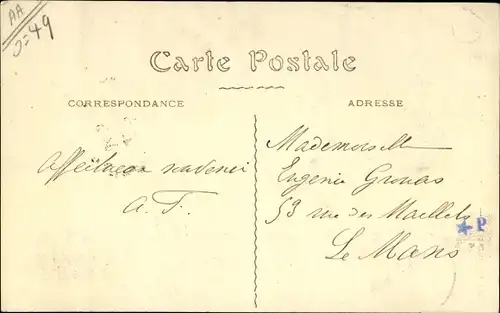 AA
Carte Postale
CORRESPONDANCE
ADRESSE
Affectueux souvenir
A. F.
Mademoiselle
Eugénie
53 rue des Maillets
Le Mans
P